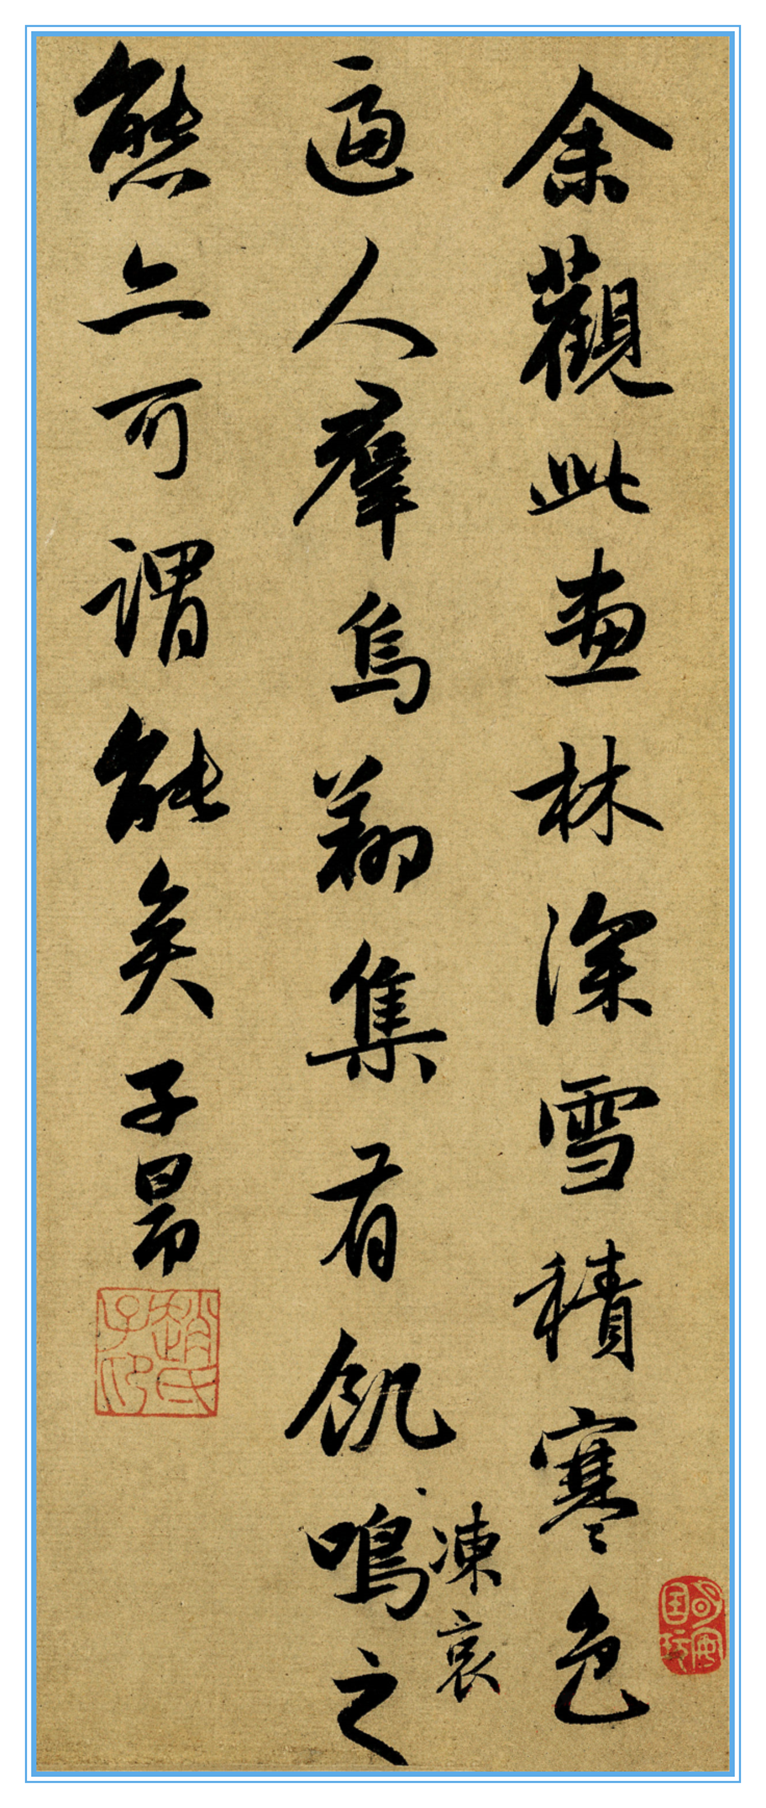 余觀此畫林深雪積寒色
逼人羣烏翔集有飢鳴之
凍哀
態亦可謂能矣子昂
趙氏子卬